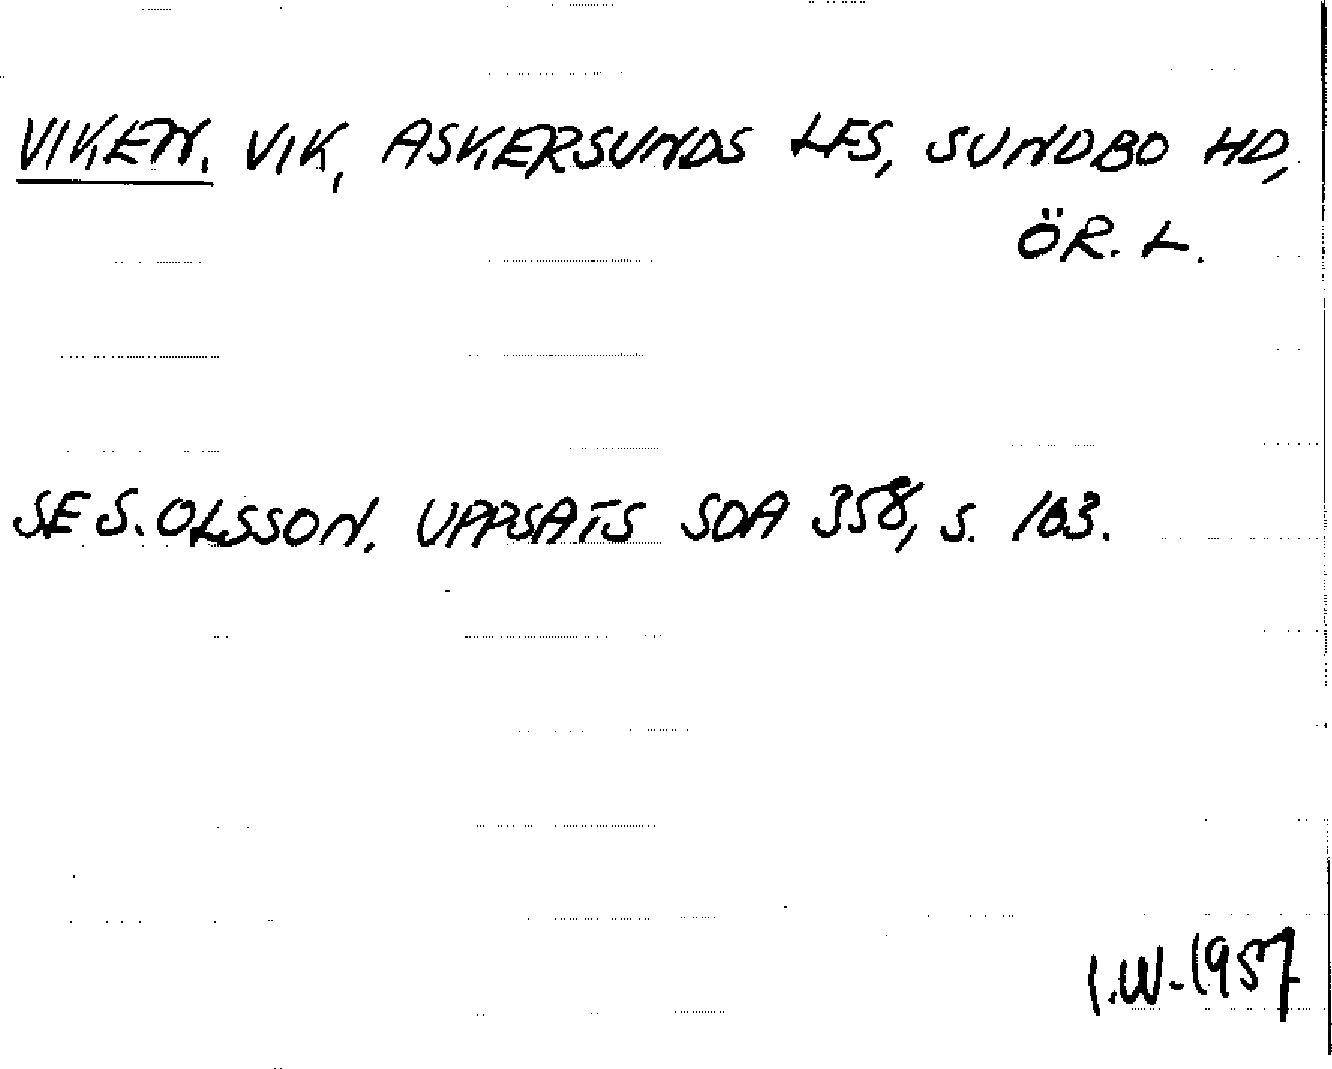 VIKEN. VIK, ASKERSUNDS LFS, SUNDBO HD,
ÖR. L.
SE S. OLSSON. UPPSATS SOA 358, S. 163.
I.W-1957